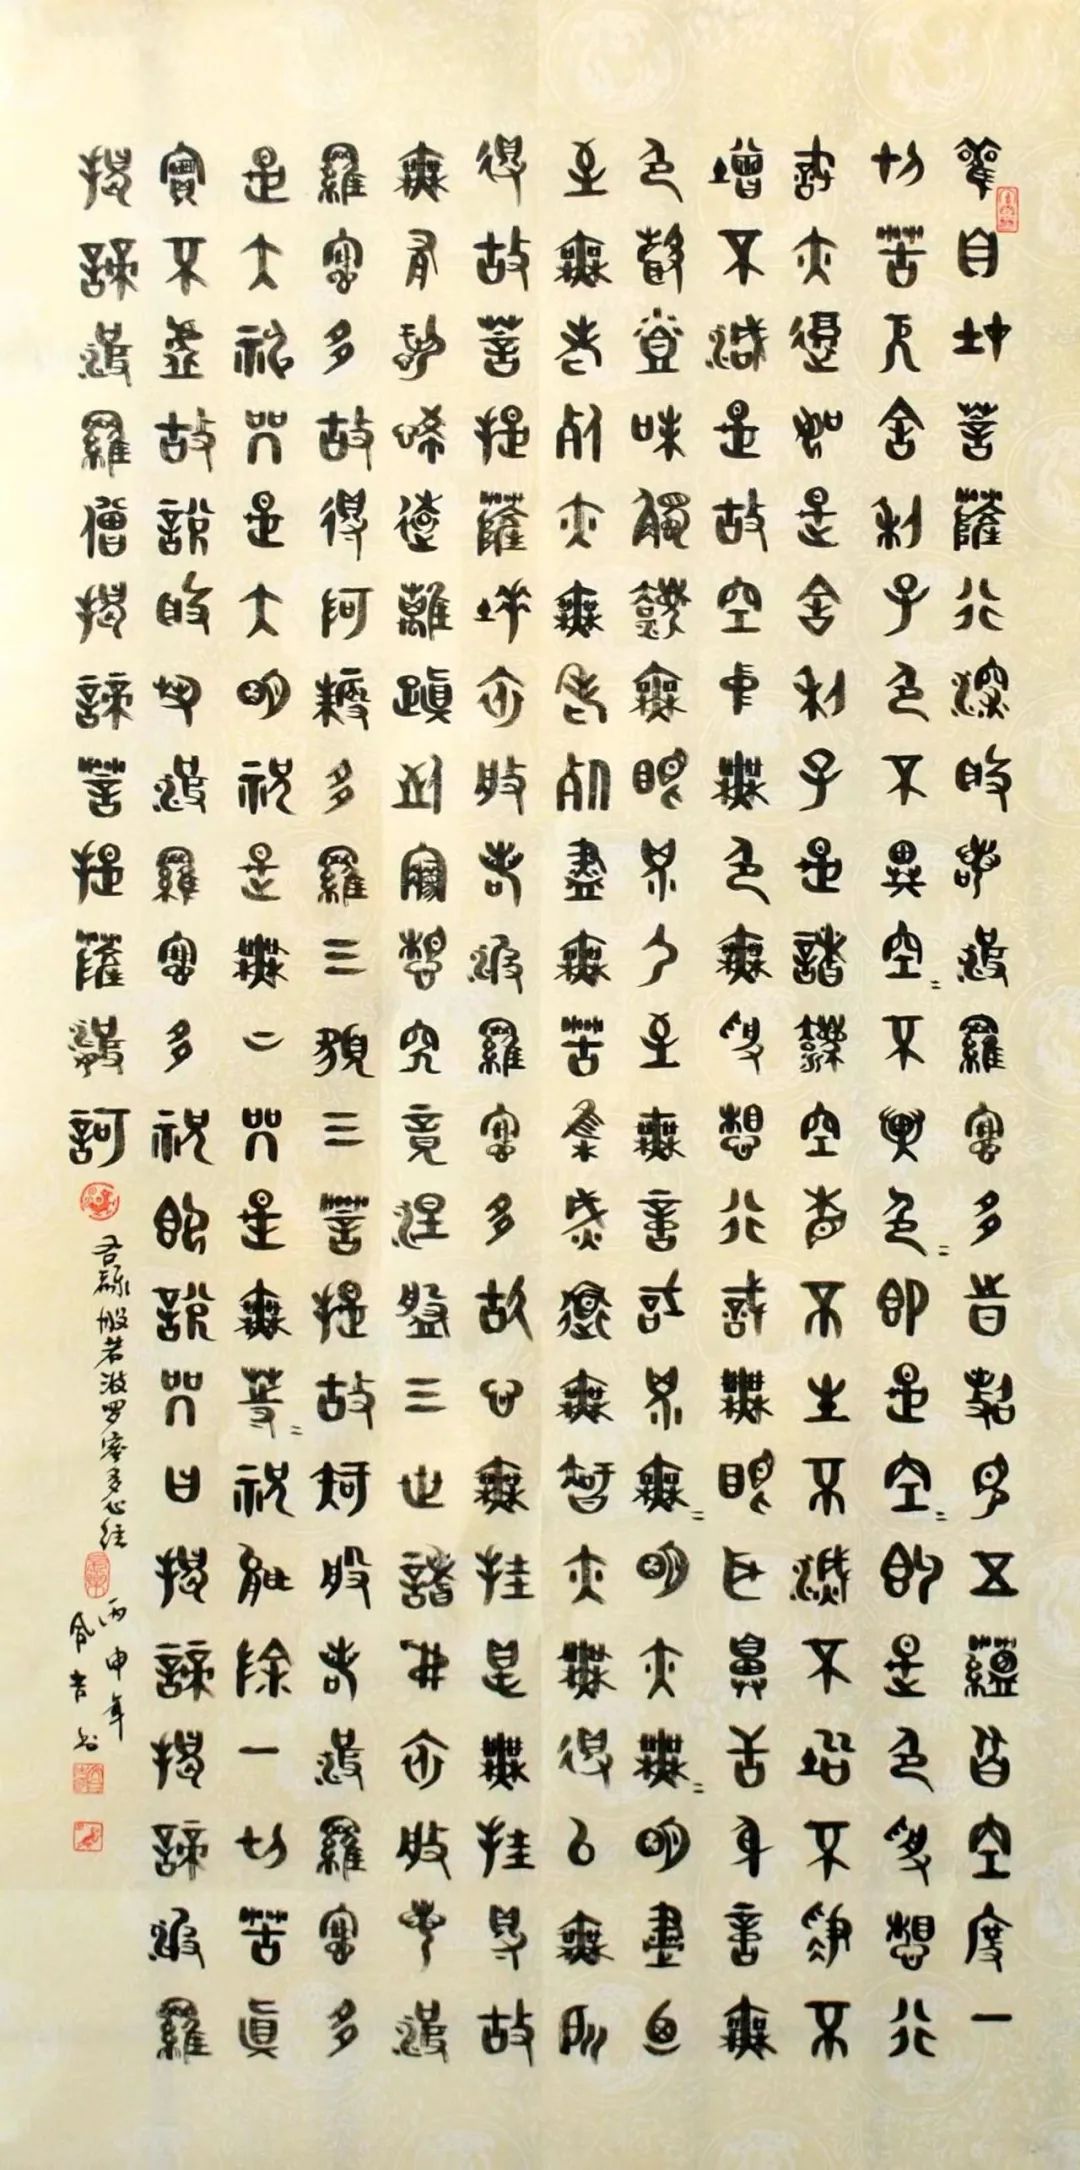 觀自在菩薩行深般若波羅蜜多時照見五蘊皆空度一
切苦厄舍利子色不異空=不異色=即是空=即是色受想行
識亦復如是舍利子是諸法空相不生不滅不垢不淨不
增不減是故空中無色無受想行識無眼耳鼻舌身意無
色聲香味觸法無眼界乃至無意識界無=明亦無=明盡乃
至無老死亦無老死盡無苦集滅道無智亦無得以無所
得故菩提薩埵依般若波羅蜜多故心無挂礙無挂礙故
無有恐怖遠離顛倒夢想究竟涅槃三世諸佛依般若波
羅蜜多故得阿耨多羅三藐三菩提故知般若波羅蜜多
是大神咒是大明祝是無上咒是無等=祝能除一切苦真
實不虛故說般若波羅蜜多祝即說咒曰揭諦揭諦波羅
揭諦波羅僧揭諦菩提薩婆訶
右録般若波罗蜜多心经
丙申年